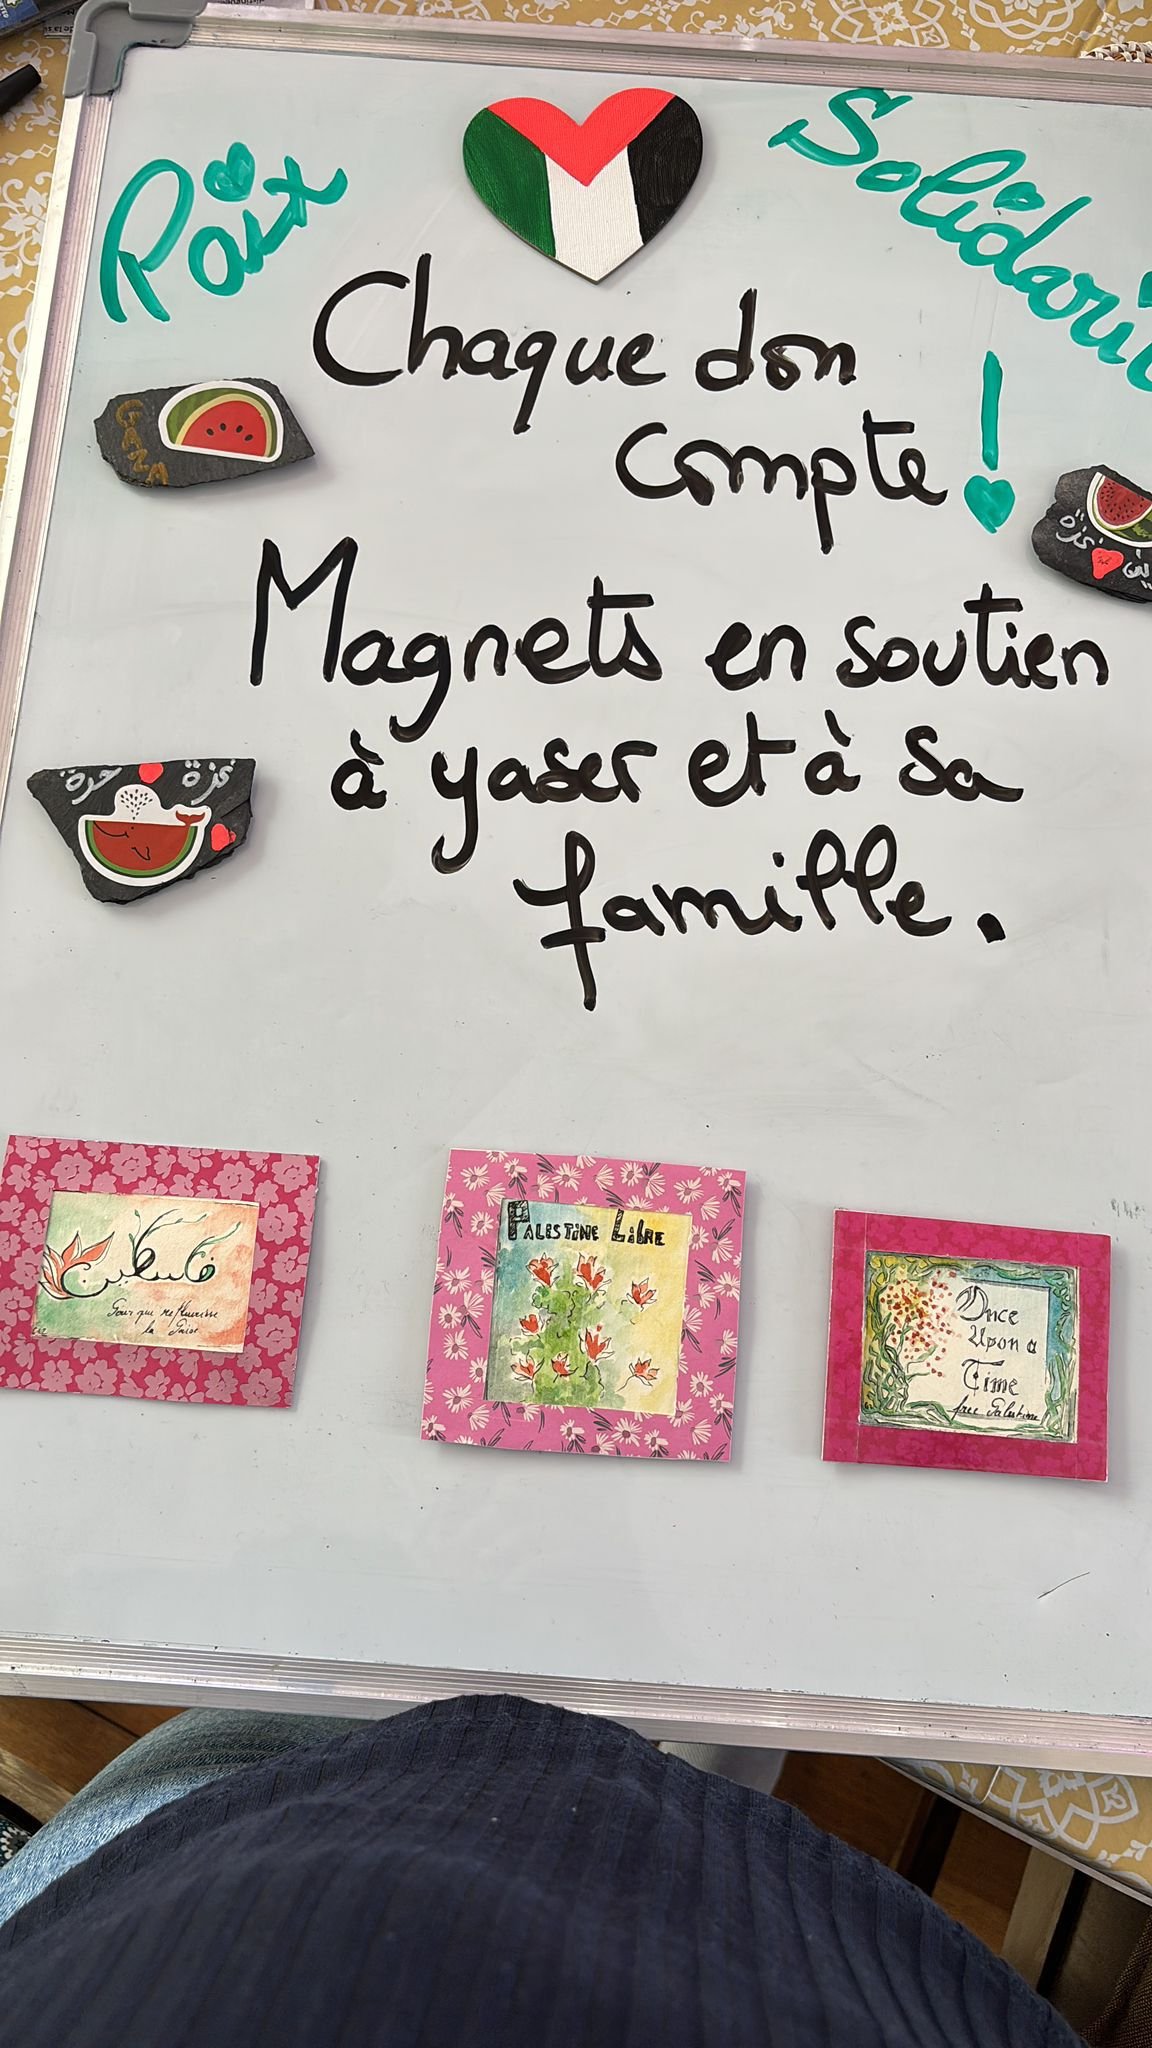 Paix
Solidarit
Chaque don
compte !
GAZA
غزة
Magnets en soutien
à yaser et à sa
famille.
غزة حرة
فلسطين
Pour que refleurisse
la Paix
PALESTINE LIBRE
Once
Upon a
Time
free Palestine